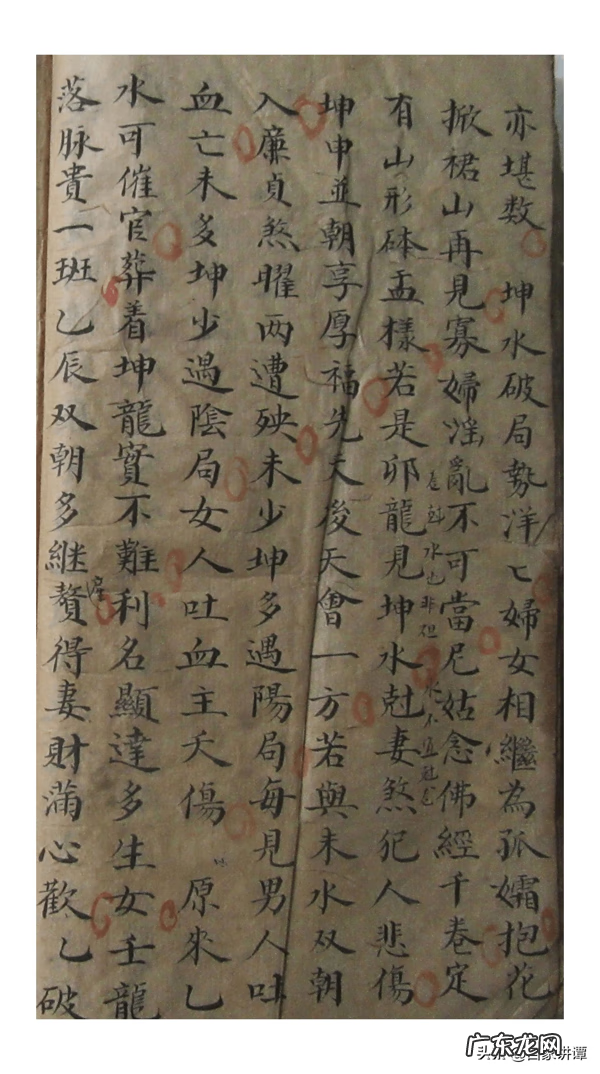 亦堪数　坤水破局勢洋〻婦女相繼為孤孀抱花
掀裙山再見寡婦滛亂不可當尼姑念佛經千卷定
水也非但
水不宜
有山形砵盂樣若是卯龍見坤水尅妻煞犯人悲傷
坤申並朝享厚福先天後天會一方若與未水双朝
入廉貞煞曜两遭殃未少坤多遇陽局每見男人吐
血亡未多坤少過陰局女人吐血主夭傷　原來乙
水可催官葬着坤龍實不難利名顯達多生女壬龍
落脉貴一班乙辰双朝多継贅得妻財滿心歡乙破
广东龙网
头条 @百家讲谭